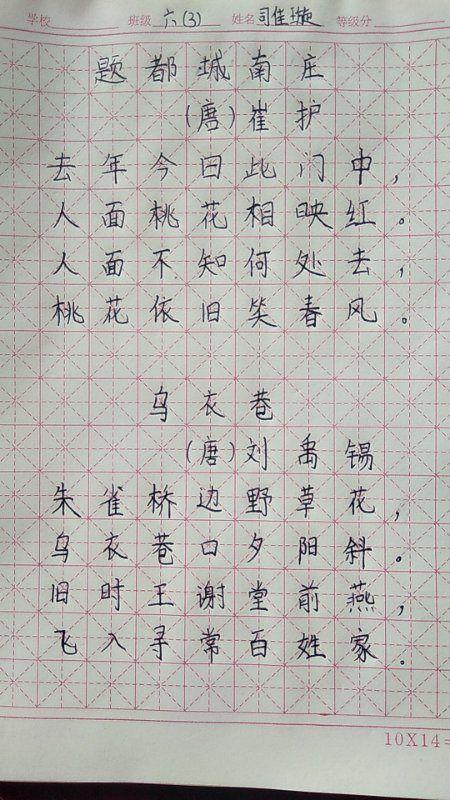 学校 班级 六(3) 姓名 司佳璇 等级分
题都城南庄
(唐)崔护
去年今日此门中，
人面桃花相映红。
人面不知何处去，
桃花依旧笑春风。
乌衣巷
(唐)刘禹锡
朱雀桥边野草花，
乌衣巷口夕阳斜。
旧时王谢堂前燕，
飞入寻常百姓家.
10X14=